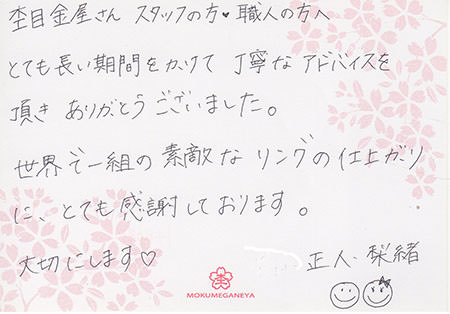 杢目金屋さん スタッフの方♥職人の方へ
とても長い期間をかけて 丁寧なアドバイスを
頂き ありがとうございました。
世界で一組の素敵なリングの仕上がり
に、とても感謝しております。
大切にします♡
正人・梨緒
MOKUMEGANEYA